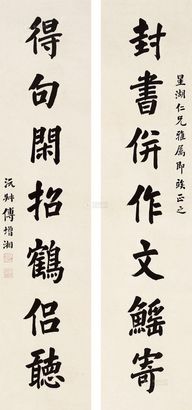 星湖仁兄雅属即颂正之
封書併作文鰩寄
得句閑招鶴侣聽
沅叔傅增湘